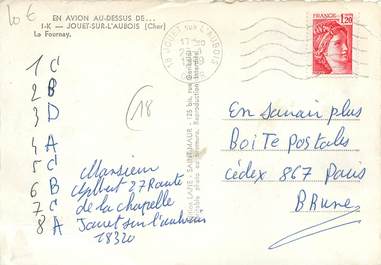 10 €
EN AVION AU-DESSUS DE...
I-K — JOUET-SUR-L'AUBOIS (Cher)
Le Fournay.
18 JOUET SUR L'AUBOIS
FRANCE
1,20
1 C
2 B
3 D
4 A
5 C
6 B
7 C
8 A
18
Monsieur
27 Route
de la chapelle
Jouet sur l'aubois
18320
LAPIE - SAINT-MAUR - 125 bis, rue Garibaldi
photo Reproduction interdite
En savoir plus
BOITE Postales
cédex 867 Paris
BRUNE